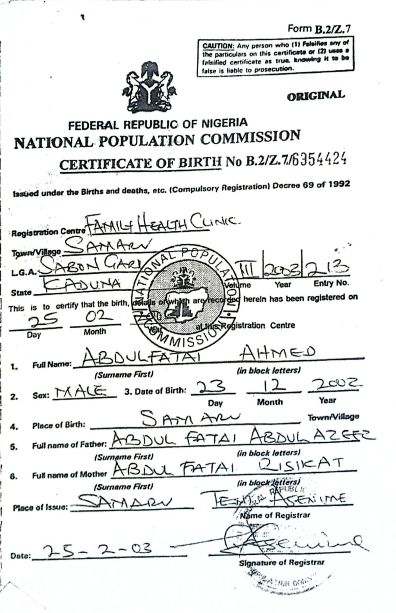 Form B.2/Z.7
CAUTION: Any person who (1) Falsifies any of
the particulars on this certificate or (2) uses a
falsified certificate as true, knowing it to be
false is liable to prosecution.
ORIGINAL
FEDERAL REPUBLIC OF NIGERIA
NATIONAL POPULATION COMMISSION
CERTIFICATE OF BIRTH No B.2/Z.7/6354424
Issued under the Births and deaths, etc. (Compulsory Registration) Decree 69 of 1992
Registration Centre FAMILY HEALTH CLINIC.
Town/Village SAMARU
L.G.A. SABON GARI III 2003 213
Volume Year Entry No.
State KADUNA
NATIONAL POPULATION COMMISSION
This is to certify that the birth, details of which are recorded herein has been registered on
25 02 at this Registration Centre
Day Month
1. Full Name: ABDULFATAI AHMED
(Surname First) (in block letters)
2. Sex: MALE 3. Date of Birth: 23 12 2002
Day Month Year
4. Place of Birth: SAMARU Town/Village
5. Full name of Father: ABDUL FATAI ABDUL AZEEZ
(Surname First) (in block letters)
6. Full name of Mother ABDUL FATAI RISIKAT
(Surname First) (in block letters)
Place of Issue: SAMARU
Name of Registrar
Date: 25-2-03
Signature of Registrar